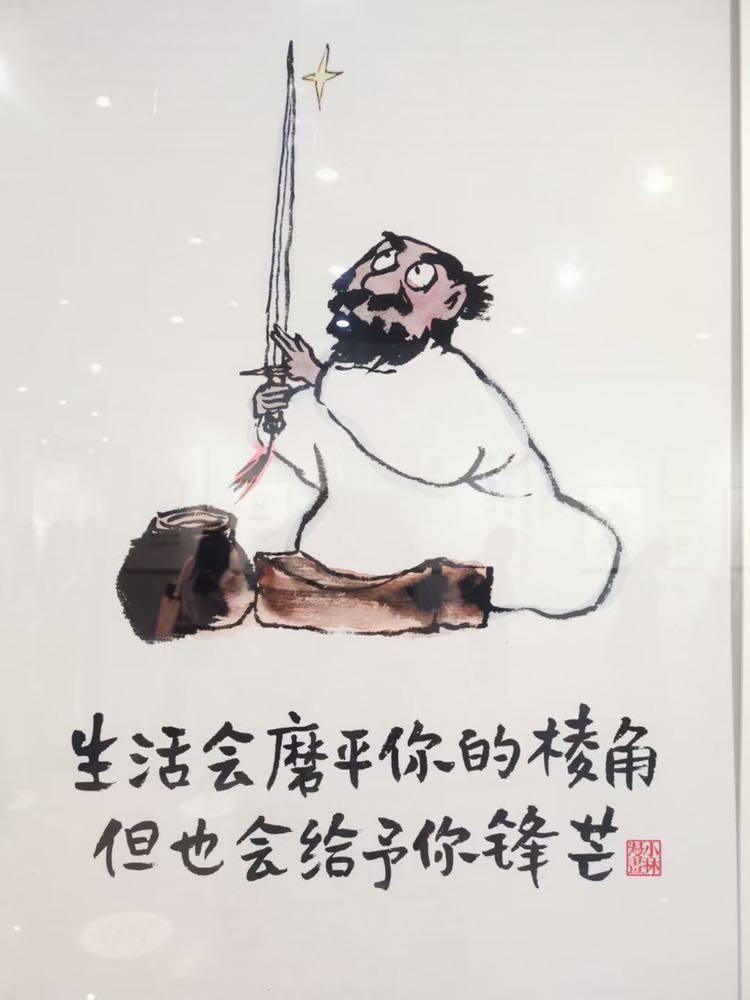 生活会磨平你的棱角
但也会给予你锋芒
小林漫画